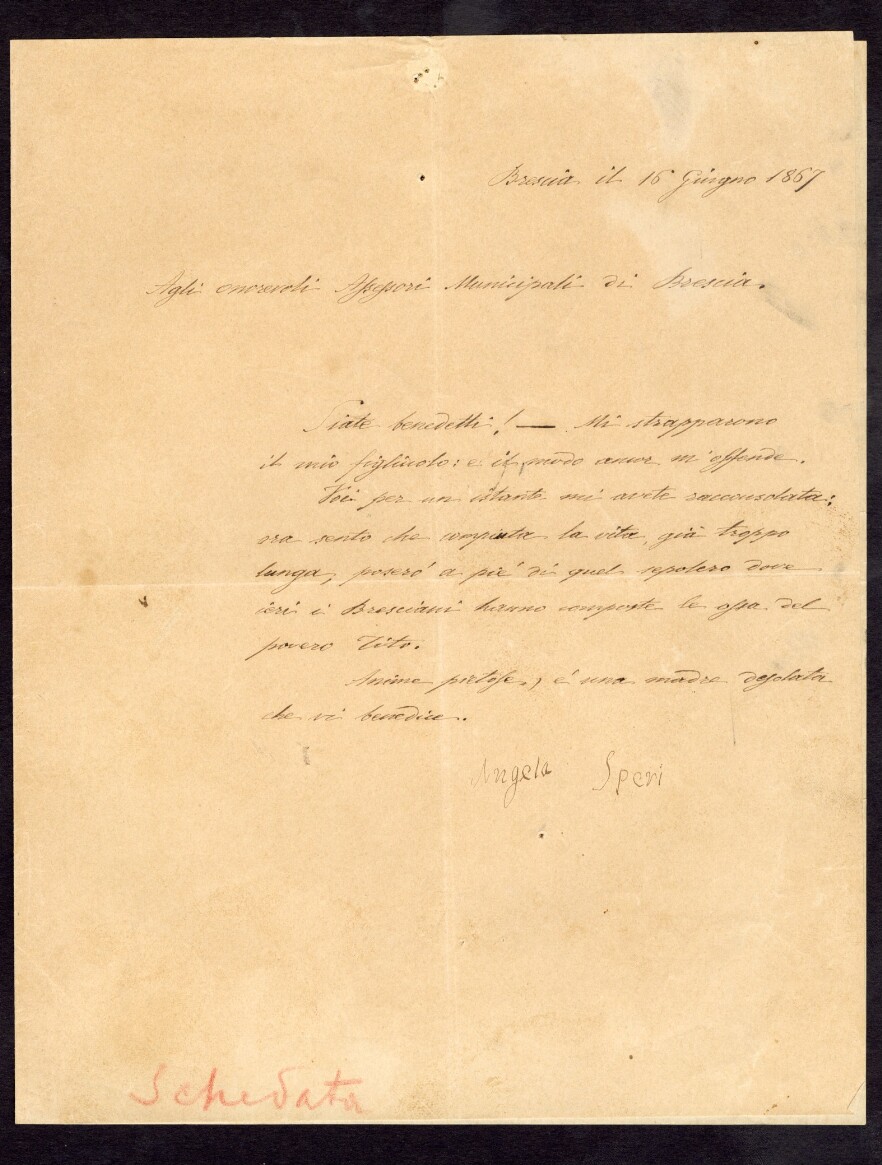 Brescia il 16 Giugno 1867
Agli onorevoli Assessori Municipali di Brescia.
Siate benedetti! — Mi strapparono
il mio figliuolo: e il modo ancor m'offende.
Voi per un istante mi avete racconsolata:
ora sento che compiuta la vita, già troppo
lunga, poserò a piè di quel sepolcro dove
ieri i Bresciani hanno composte le ossa del
povero Tito.
Anime pietose, è una madre desolata
che vi benedice.
Angela Speri
Schedata